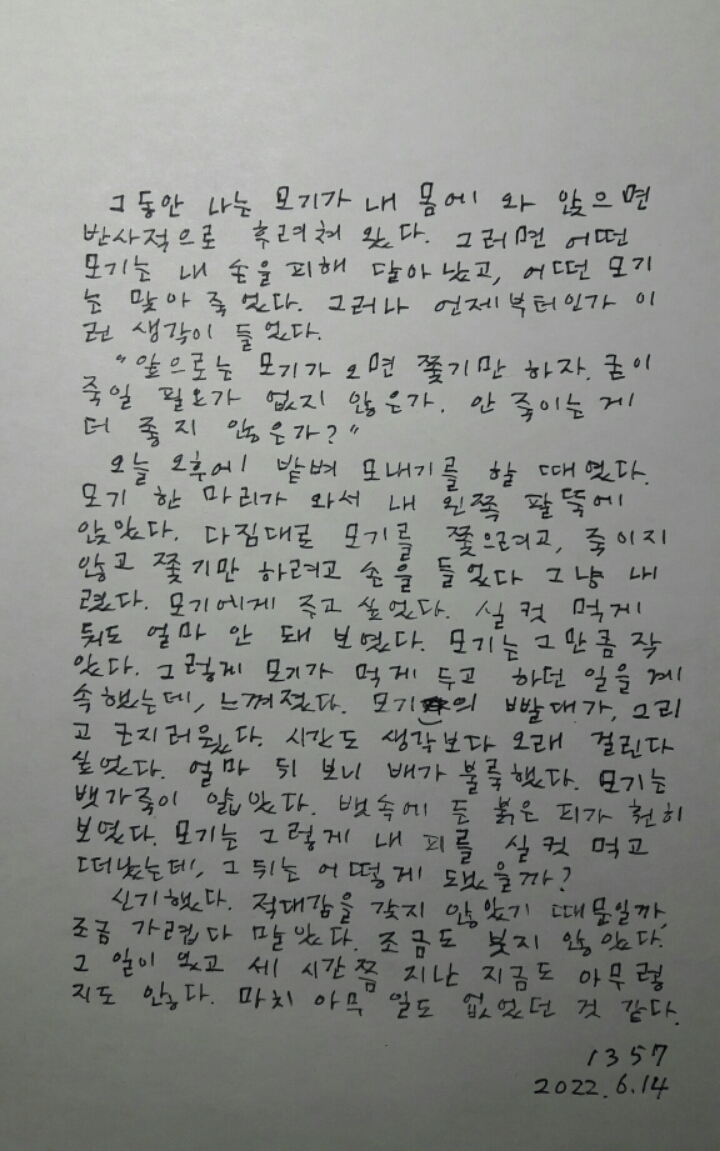 그동안 나는 모기가 내 몸에 와 앉으면
반사적으로 후려쳐 왔다. 그러면 어떤
모기는 내 손을 피해 달아났고, 어떤 모기
는 맞아 죽었다. 그러나 언제부터인가 이
런 생각이 들었다.
"앞으로는 모기가 오면 쫓기만 하자. 굳이
죽일 필요가 없지 않은가. 안 죽이는 게
더 좋지 않은가?"
오늘 오후에 밭벼 모내기를 할 때였다.
모기 한 마리가 와서 내 왼쪽 팔뚝에
앉았다. 다짐대로 모기를 쫓으려고, 죽이지
않고 쫓기만 하려고 손을 들었다 그냥 내
렸다. 모기에게 주고 싶었다. 실컷 먹게
둬도 얼마 안 돼 보였다. 모기는 그만큼 작
았다. 그렇게 모기가 먹게 두고 하던 일을 계
속했는데, 느껴졌다. 모기의 빨대가. 그리
고 근지러웠다. 시간도 생각보다 오래 걸린다
싶었다. 얼마 뒤 보니 배가 불룩했다. 모기는
뱃가죽이 얇았다. 뱃속에 든 붉은 피가 훤히
보였다. 모기는 그렇게 내 피를 실컷 먹고
떠났는데, 그 뒤는 어떻게 됐을까?
신기했다. 적대감을 갖지 않았기 때문일까,
조금 가렵다 말았다. 조금도 붓지 않았다.
그 일이 있고 세 시간쯤 지난 지금도 아무렇
지도 않다. 마치 아무 일도 없었던 것 같다.
1357
2022.6.14